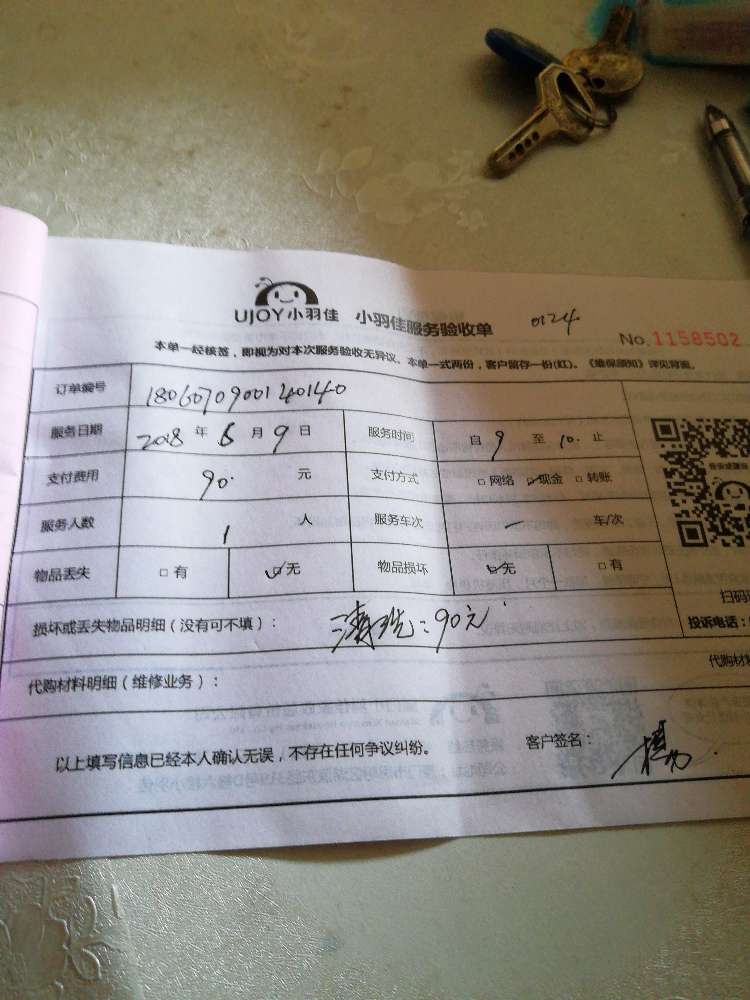 UJOY小羽佳 小羽佳服务验收单 0124
No.1158502
本单一经核签，即视为对本次服务验收无异议。本单一式两份，客户留存一份(红)。《维保须知》详见背面。
订单编号 180607090014040140
服务日期 2018年6月9日 服务时间 自9至10.止
支付费用 90.元 支付方式 □网络 ☑现金 □转账
服务人数 1人 服务车次 车/次
物品丢失 □有 ☑无 物品损坏 ☑无 □有
扫码
损坏或丢失物品明细（没有可不填）： 清洗：90元
投诉电话：
代购材料明细（维修业务）： 代购材
以上填写信息已经本人确认无误，不存在任何争议纠纷。 客户签名：